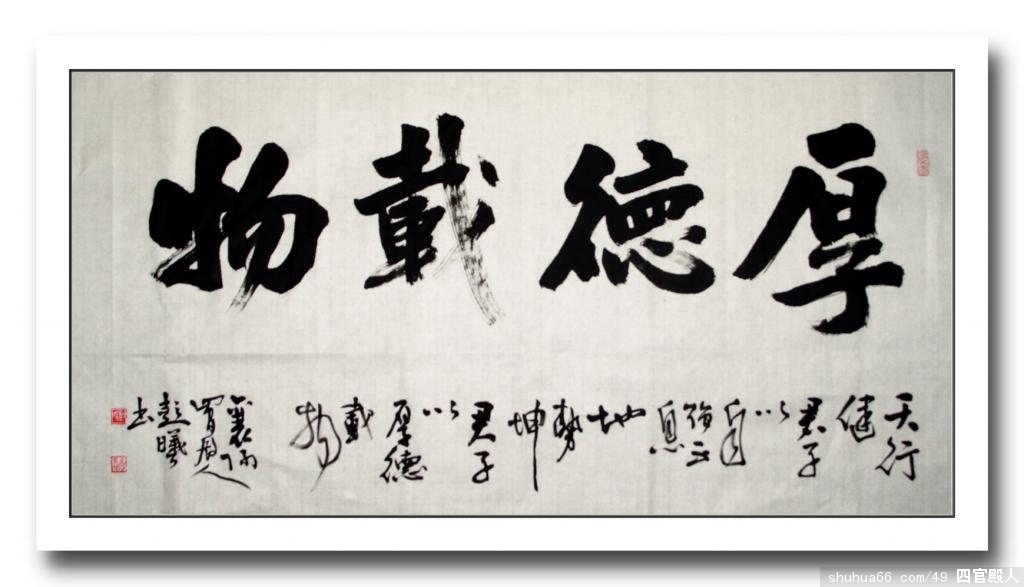 厚德載物
天行
健
君子
以
自
强不
息
地
勢
坤
君子
以
厚德
載
物
彭曦
书
shuhua66.com/49 四官殿人